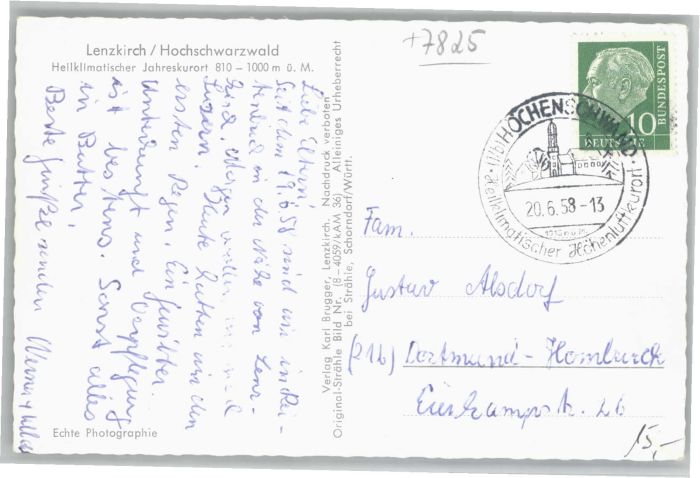 +7825
Lenzkirch / Hochschwarzwald
Heilklimatischer Jahreskurort 810 – 1000 m ü. M.
Liebe Eltern!
Seit dem 19.6.58 sind wir in
in der Nähe von Lenz-
Morgen wollen wir nach
Luzern. Heute hatten wir den
ersten Regen. Ein Gewitter.
Unterkunft und Verpflegung
ist bestens. Sonst alles
in Butter.
Beste Grüße senden Werner +
Echte Photographie
Verlag Karl Brugger, Lenzkirch. Nachdruck verboten
Original-Strähle Bild Nr. (8 – 4059/kAM 36) Alleiniges Urheberrecht
bei Strähle, Schorndorf/Württ.
DEUTSCHE
BUNDESPOST
10
(17b) HÖCHENSCHWAND
20.6.58-13
Heilklimatischer Höhenluftkurort
Fam.
Gustav Alsdorf
(21b) Dortmund-Hombruch
Eierkampstr. 26
15,-